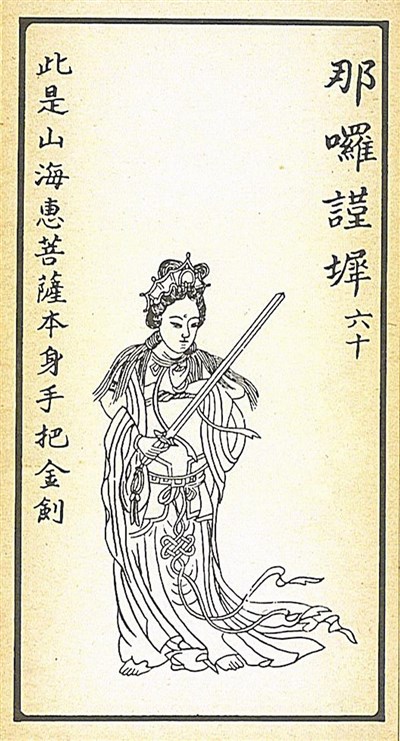 那囉謹墀 六十
此是山海惠菩薩本身手把金剣